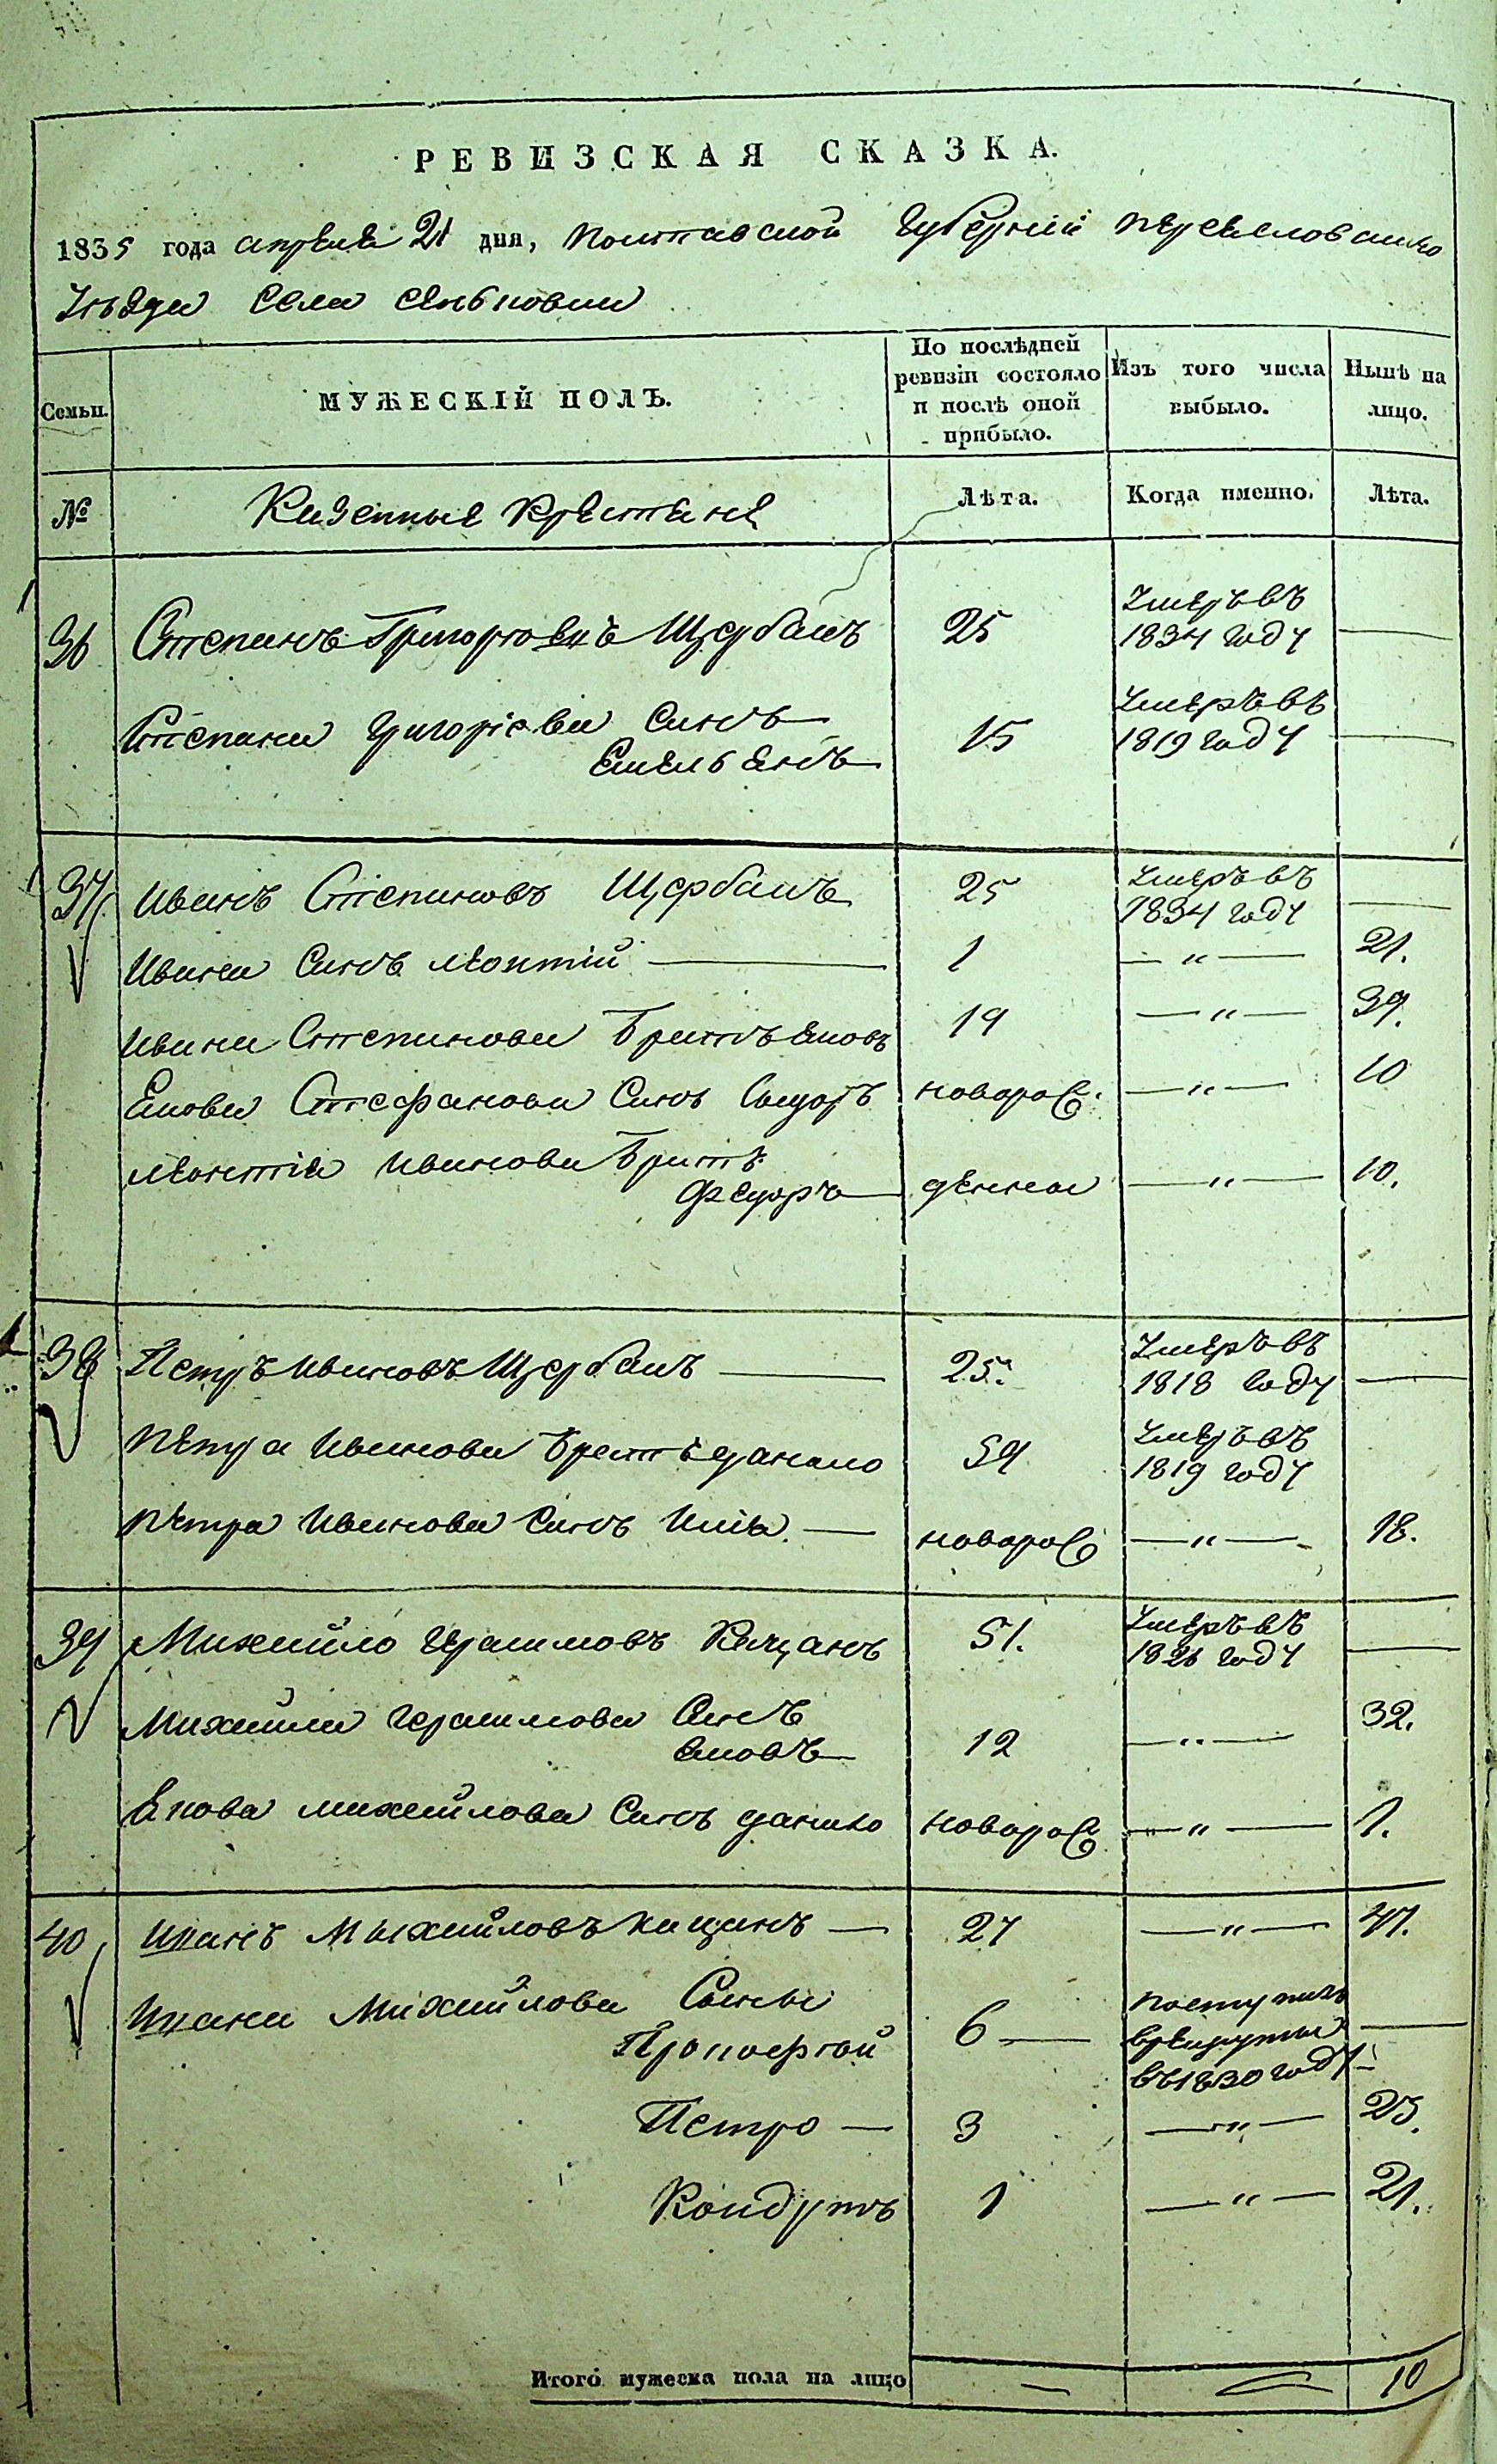 РЕВИЗСКАЯ СКАЗКА.
1835 года апреля 21 дня, Полтавской Губернии Переяславскаго
уезда Села
Семьи.
МУЖЕСКІЙ ПОЛЪ.
По послѣдней ревизіи состояло и послѣ оной прибыло.
Изъ того числа выбыло.
Нынѣ на лицо.
№
Казенные Крестяне
Лѣта.
Когда именно.
Лѣта.
36 Степанъ Григорьевъ Щербакъ 25 Умеръ въ 1834 году —
Степана Григоріева Синъ Емельянъ 15 Умеръ въ 1819 году —
37. Иванъ Степановъ Щербакъ 25 Умеръ въ 1834 году —
Ивана Синъ Леонтій — 1 — " — 21.
Ивана Степанова Братъ Яковъ 19 — " — 39.
Якова Стефанова Синъ новорож. — " — 10
Леонтія Иванова Братъ Федоръ — — " — 10.
38 Петръ Ивановъ Щербакъ — 25. Умеръ въ 1818 году —
Петра Иванова Братъ Данило 59 Умеръ въ 1819 году
Петра Иванова Синъ Илія — новорож — " — 18.
39 Михайло Герасимовъ Кацанъ 51. Умеръ въ 1826 году —
Михайла Герасимова Синъ Яковъ — 12 — " — 32.
Якова Михайлова Синъ Данило новорож — " — 1.
40 Михайловъ Кацанъ — 27 — " — 47.
Михайлова Сыны Прокофтій 6 — поступилъ врекруты въ 1830 году —
Петро — 3 — " — 23.
Кондратъ 1 — " — 21.
Итого мужеска пола на лицо — — 10